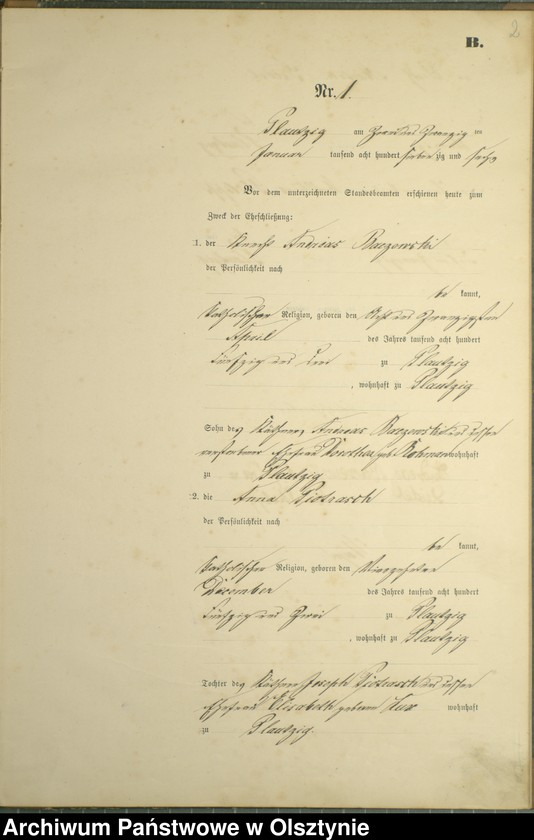 2
B.
Nr. 1.
Plautzig am Zwei und Zwanzig ten
Januar tausend acht hundert sieben zig und sechs
Vor dem unterzeichneten Standesbeamten erschienen heute zum
Zweck der Eheschließung:
1. der Knecht Andreas Barzewski
der Persönlichkeit nach
be kannt,
katholischer Religion, geboren den Acht und Zwanzigsten
April des Jahres tausend acht hundert
fünfzig und drei zu Plautzig
, wohnhaft zu Plautzig
Sohn des Käthners Andreas Barzewski und dessen
verstorbenen Ehefrau Dorothea geb. wohnhaft
zu Plautzig
2. die Anna Piotrasch
der Persönlichkeit nach
be kannt,
katholischer Religion, geboren den Vierzehnten
December des Jahres tausend acht hundert
fünfzig und zwei zu Plautzig
, wohnhaft zu Plautzig
Tochter des Käthners Joseph Piotrasch und dessen
Ehefrau Elisabeth geborene wohnhaft
zu Plautzig.
Archiwum Państwowe w Olsztynie